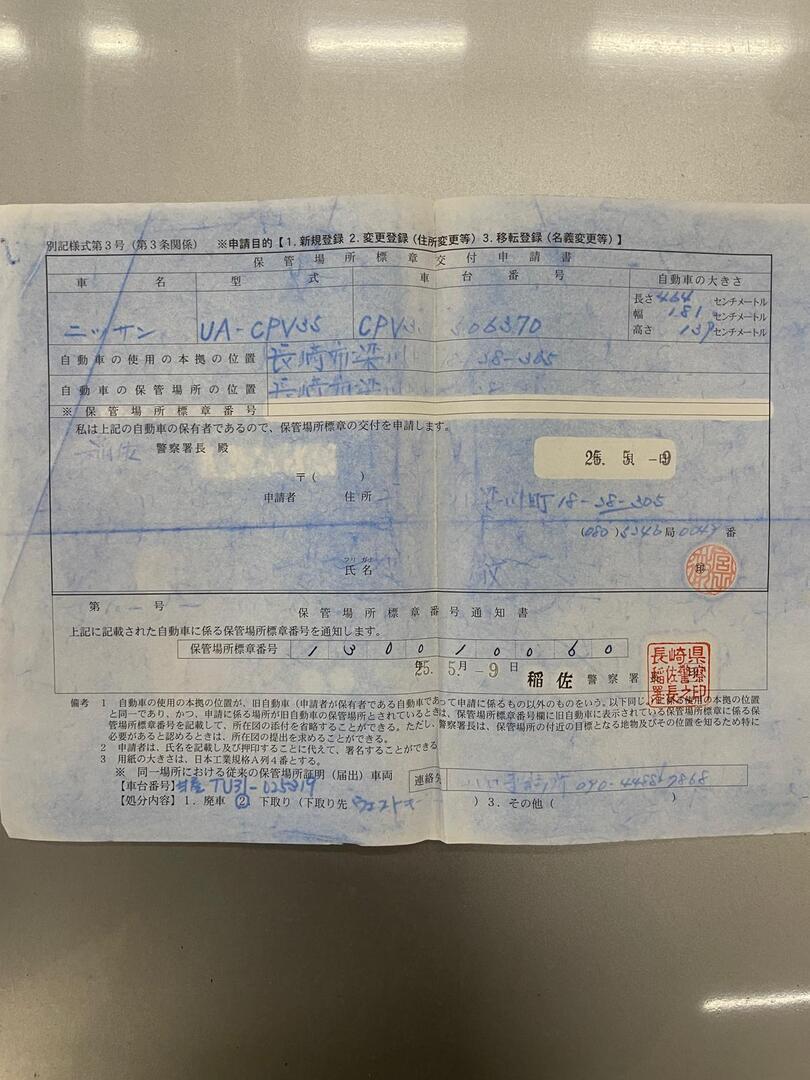 別記様式第3号(第3条関係) ※申請目的【1.新規登録 2.変更登録(住所変更等)3.移転登録(名義変更等)】
保管場所標章交付申請書
車名 型式 車台番号 自動車の大きさ
ニッサン UA-CPV35 CPV3 306370
長さ 464 センチメートル
幅 181 センチメートル
高さ 139 センチメートル
自動車の使用の本拠の位置 長崎市梁川 38-305
自動車の保管場所の位置 長崎市梁川
※保管場所標章番号
私は上記の自動車の保有者であるので、保管場所標章の交付を申請します。
警察署長 殿
25. 5. -9
〒( )
申請者 住所 梁川町18-38-305
(080) 局 番
フリガナ
氏名 印
第 号 保管場所標章番号通知書
上記に記載された自動車に係る保管場所標章番号を通知します。
保管場所標章番号 130010060
25. 5. -9日
稲佐 警察署長
長崎県稲佐警察署長之印
備考 1 自動車の使用の本拠の位置が、旧自動車(申請者が保有者である自動車であって申請に係るもの以外のものをいう。以下同じ。)に係る使用の本拠の位置
と同一であり、かつ、申請に係る場所が旧自動車の保管場所とされているときは、保管場所標章番号欄に旧自動車に表示されている保管場所標章に係る保
管場所標章番号を記載して、所在図の添付を省略することができる。ただし、警察署長は、保管場所の付近の目標となる地物及びその位置を知るため特に
必要があると認めるときは、所在図の提出を求めることができる。
2 申請者は、氏名を記載し及び押印することに代えて、署名することができる
3 用紙の大きさは、日本工業規格A列4番とする。
※ 同一場所における従来の保管場所証明(届出)車両 連絡先 090-
【車台番号】 TU31-025319
【処分内容】1.廃車 2 下取り(下取り先 ウエスト )3.その他( )